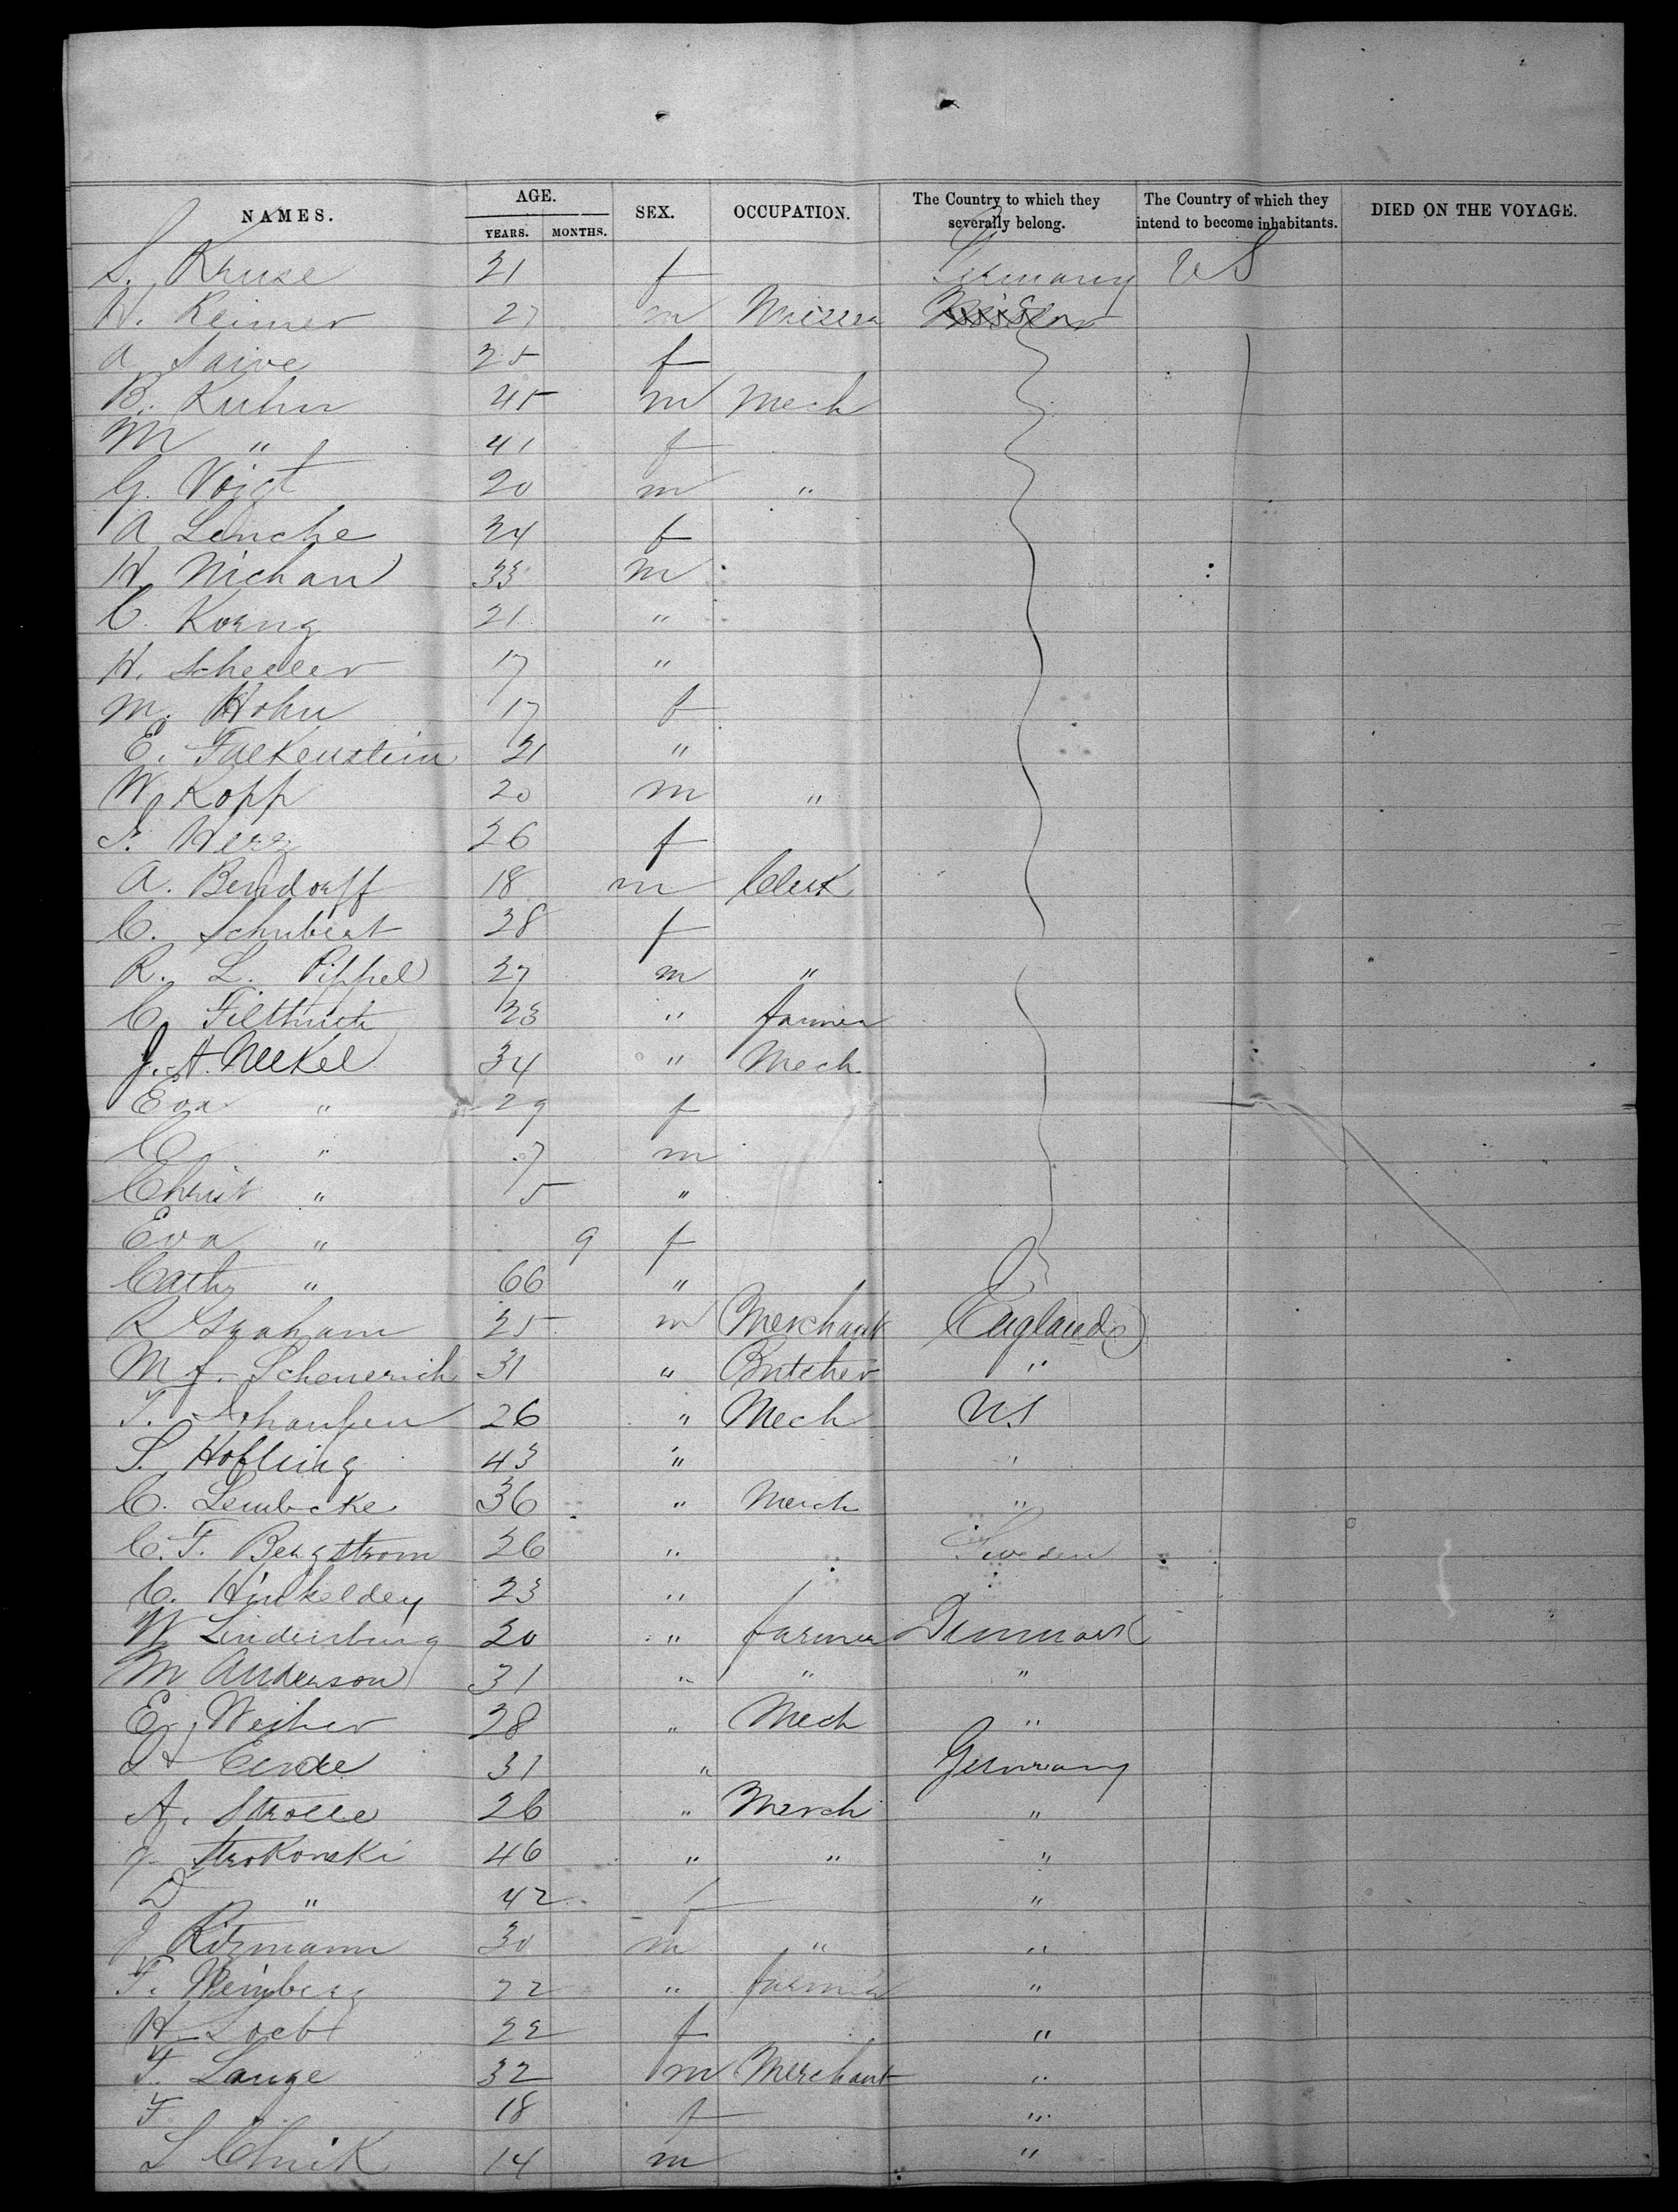 NAMES. AGE. YEARS. MONTHS. SEX. OCCUPATION. The Country to which they severally belong. The Country of which they intend to become inhabitants. DIED ON THE VOYAGE.
S. Kruse 21 f Germany US
H. Reimer 27 m
A Saive 25 f
B. Kuhn 45 m Mech
M " 41 f
G. Voigt 20 m "
A Lenche 24 f
H. Nichan 33 m
C. Korng 21 "
H. Scheller 17 "
M. Hohn 17 f
E. Falkenstein 21 "
W. Kopp 20 m "
S. Herz 26 f
A. Bendorff 18 m Clerk
C. Schubert 28 f
R. L. Pippel 27 m "
C. 23 " farmer
J. A. Meekel 34 " Mech
Eva " 29 f
C " 7 m
Christ " 5 "
Eva " 9 f
Cath " 66 "
R Graham 25 m Merchant England
M f. Scheuerich 31 " Butcher "
T. 26 " Mech US
S. Hofling 43 " "
C. Lembcke 36 " Merch "
C. F. Bergstrom 26 " Sweden
C. Hinkeldey 23 "
W Lindenburg 20 " farmer Denmark
M Anderson 31 " " "
E. Weiher 28 " Mech "
31 " Germany
A. Strolle 26 " Merch "
J. Strokonski 46 " " "
D " 42 f "
J Ritzmann 30 m " "
F. Weinberg 22 " farmer "
H. Loeb 22 f "
F. Lange 32 m Merchant "
F. 18 f "
L Chrik 14 m "